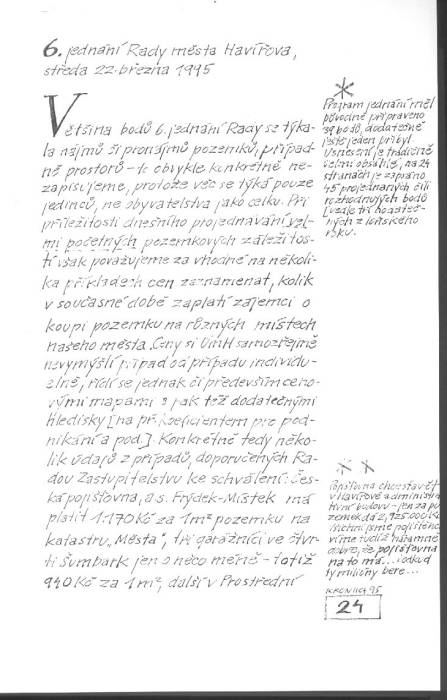 6. jednání Rady města Havířova,
středa 22. března 1995
Většina bodů 6. jednání Rady se týka-
la nájmů či pronájmů pozemků, případ-
ně prostorů - to obvykle konkrétně ne-
zapisujeme, protože věc se týká pouze
jedinců, ne obyvatelstva jako celku. Při
příležitosti dnešního projednávání vel-
mi početných pozemkových záležitos-
tí však považujeme za vhodné na několi-
ka příkladech cen zaznamenat, kolik
v současné době zaplatí zájemci o
koupi pozemku na různých místech
našeho města. Ceny si ÚMH samozřejmě
nevymýšlí případ od případu individu-
elně, řídí se jednak či především ceno-
vými mapami a jak též dodatečnými
hledisky [na př. koeficientem pro pod-
nikání a pod.]. Konkrétně tedy něko-
lik údajů z případů, doporučených Ra-
dou Zastupitelstvu ke schválení: Čes-
ká pojišťovna, a.s. Frýdek-Místek má
platit 1.170 Kč za 1m² pozemku na
katastru „Města", tři garážníci ve čtvr-
ti Šumbark jen o něco méně - totiž
940 Kč za 1m², další v Prostřední
*
Program jednání měl
původně připraveno
39 bodů, dodatečně
ještě jeden přibyl.
Usnesení je tradičně
velmi obsáhlé, na 24
stranách je zapsáno
45 projednaných čili
rozhodnutých bodů
[vzdor tří dodateč-
ných z loňského
roku.
* *
Pojišťovna chce stavět
v Havířově administra
tivní budovu - jen za po
zemek dá 2,925.000 Kč
Mnozí jsme pojištěnci,
víme tudíž náramně
dobře, že pojišťovna
na to má... i odkud
ty miliony bere...
KRONIKA 95
24